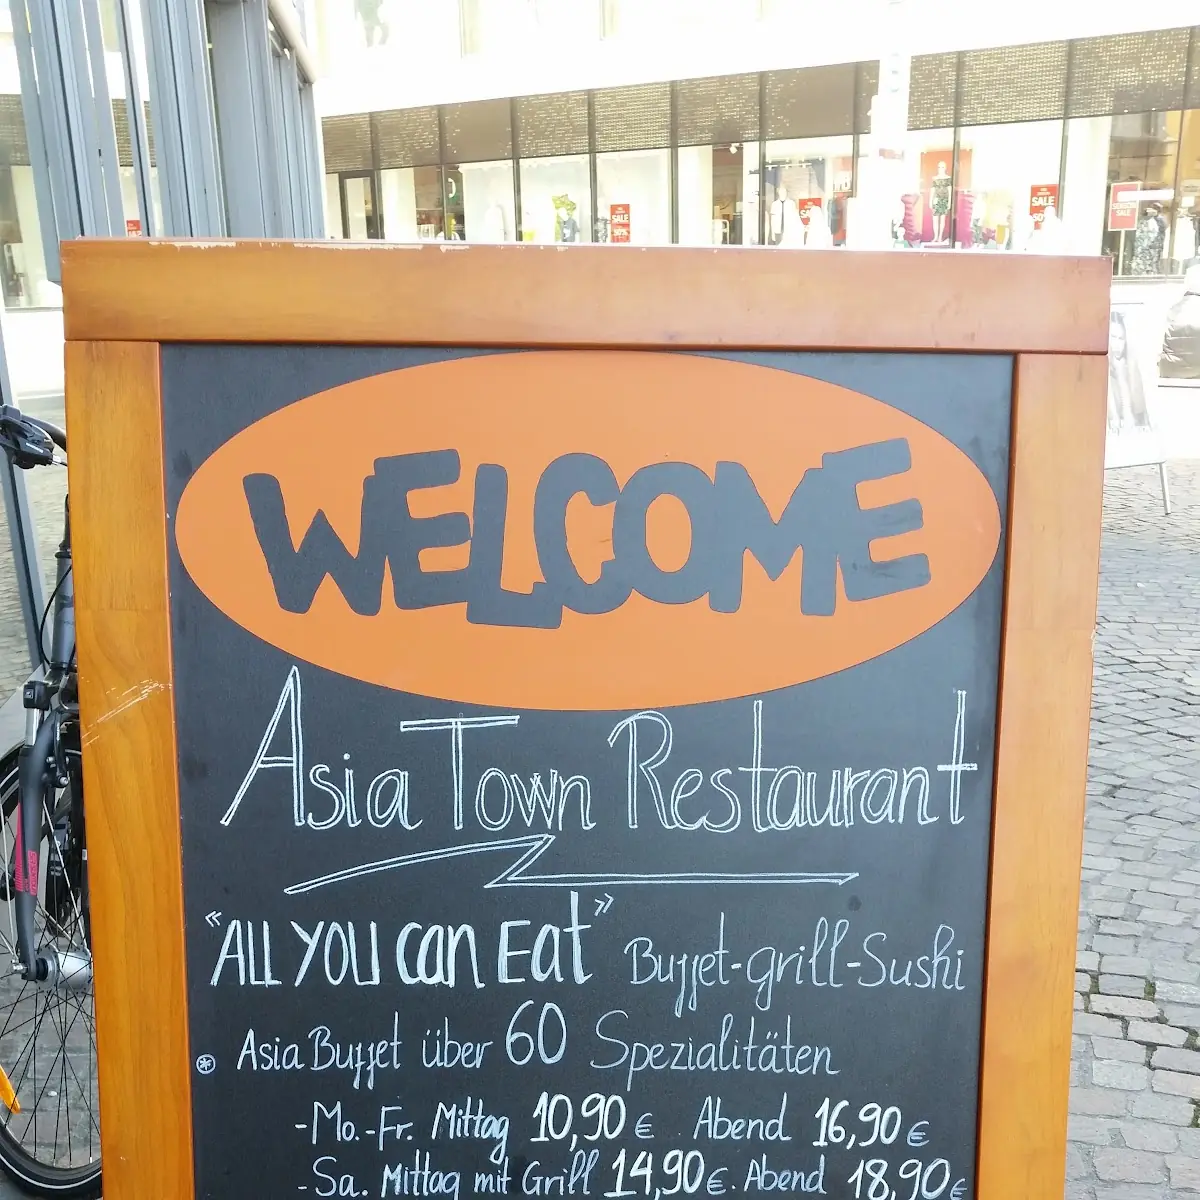 SALE
50%
SALE
SALE
50%
SALE
WELCOME
Asia Town Restaurant
"ALL YOU can Eat" Buffet-grill-Sushi
* Asia Buffet über 60 Spezialitäten
-Mo.-Fr. Mittag 10,90 € Abend 16,90 €
-Sa. Mittag mit Grill 14,90 €. Abend 18,90 €